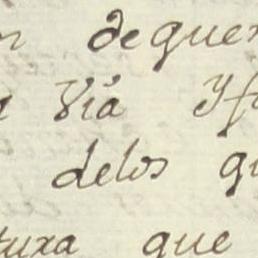 deque
Vía Y
delos q
tura que